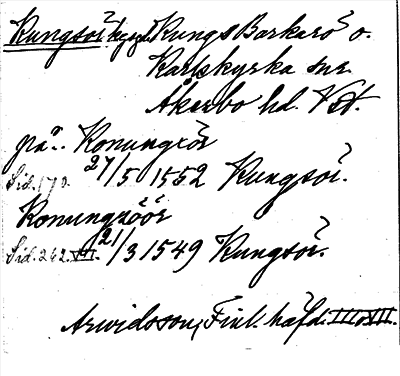 Kungsör by o. Kungs Barkarö o.
Karlskyrka snr
Åkerbo hd. Vstl.
på.. Konungxör
Sid. 170. 27/5 1552 Kungsör.
Konungxöör
Sid. 262. VI. 21/3 1549 Kungsör.
Arwidsson, Finl. häfd. III o. VI.